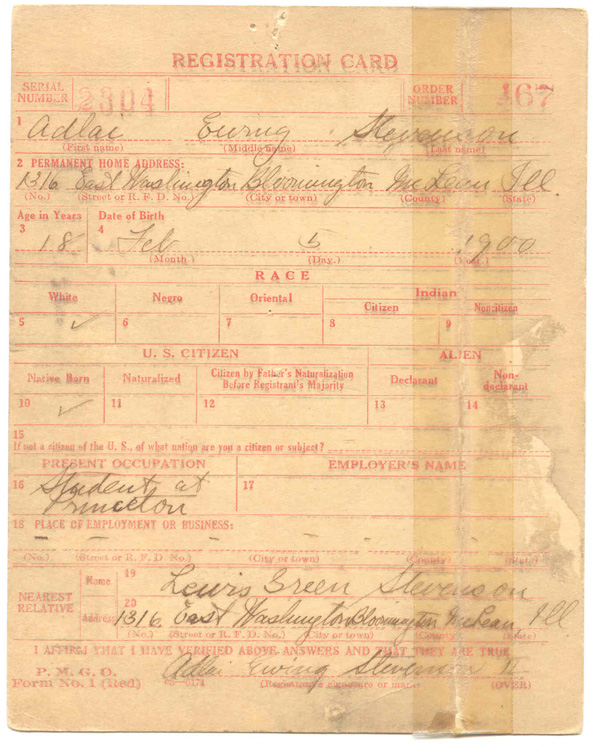 REGISTRATION CARD
SERIAL NUMBER 2304 ORDER NUMBER 467
1 Adlai Ewing Stevenson
(First name) (Middle name) (Last name)
2 PERMANENT HOME ADDRESS:
1316 East Washington Bloomington McLean Ill.
(No.) (Street or R. F. D. No.) (City or town) (County) (State)
Age in Years Date of Birth
3 18 4 Feb 5 1900
(Month.) (Day.) (Year.)
RACE
White Negro Oriental Indian
Citizen Noncitizen
5 ✓ 6 7 8 9
U. S. CITIZEN ALIEN
Native Born Naturalized Citizen by Father's Naturalization Before Registrant's Majority Declarant Non-declarant
10 ✓ 11 12 13 14
15
If not a citizen of the U. S., of what nation are you a citizen or subject?
PRESENT OCCUPATION EMPLOYER'S NAME
16 Student at 17
Princeton
18 PLACE OF EMPLOYMENT OR BUSINESS:
(No.) (Street or R. F. D. No.) (City or town) (County) (State)
NEAREST RELATIVE Name 19 Lewis Green Stevenson
Address 20 1316 East Washington Bloomington McLean, Ill
(No.) (Street or R. F. D. No.) (City or town) (County) (State)
I AFFIRM THAT I HAVE VERIFIED ABOVE ANSWERS AND THAT THEY ARE TRUE
P. M. G. O. Adlai Ewing Stevenson II
Form No. 1 (Red) (Registrant's signature or mark) (OVER)